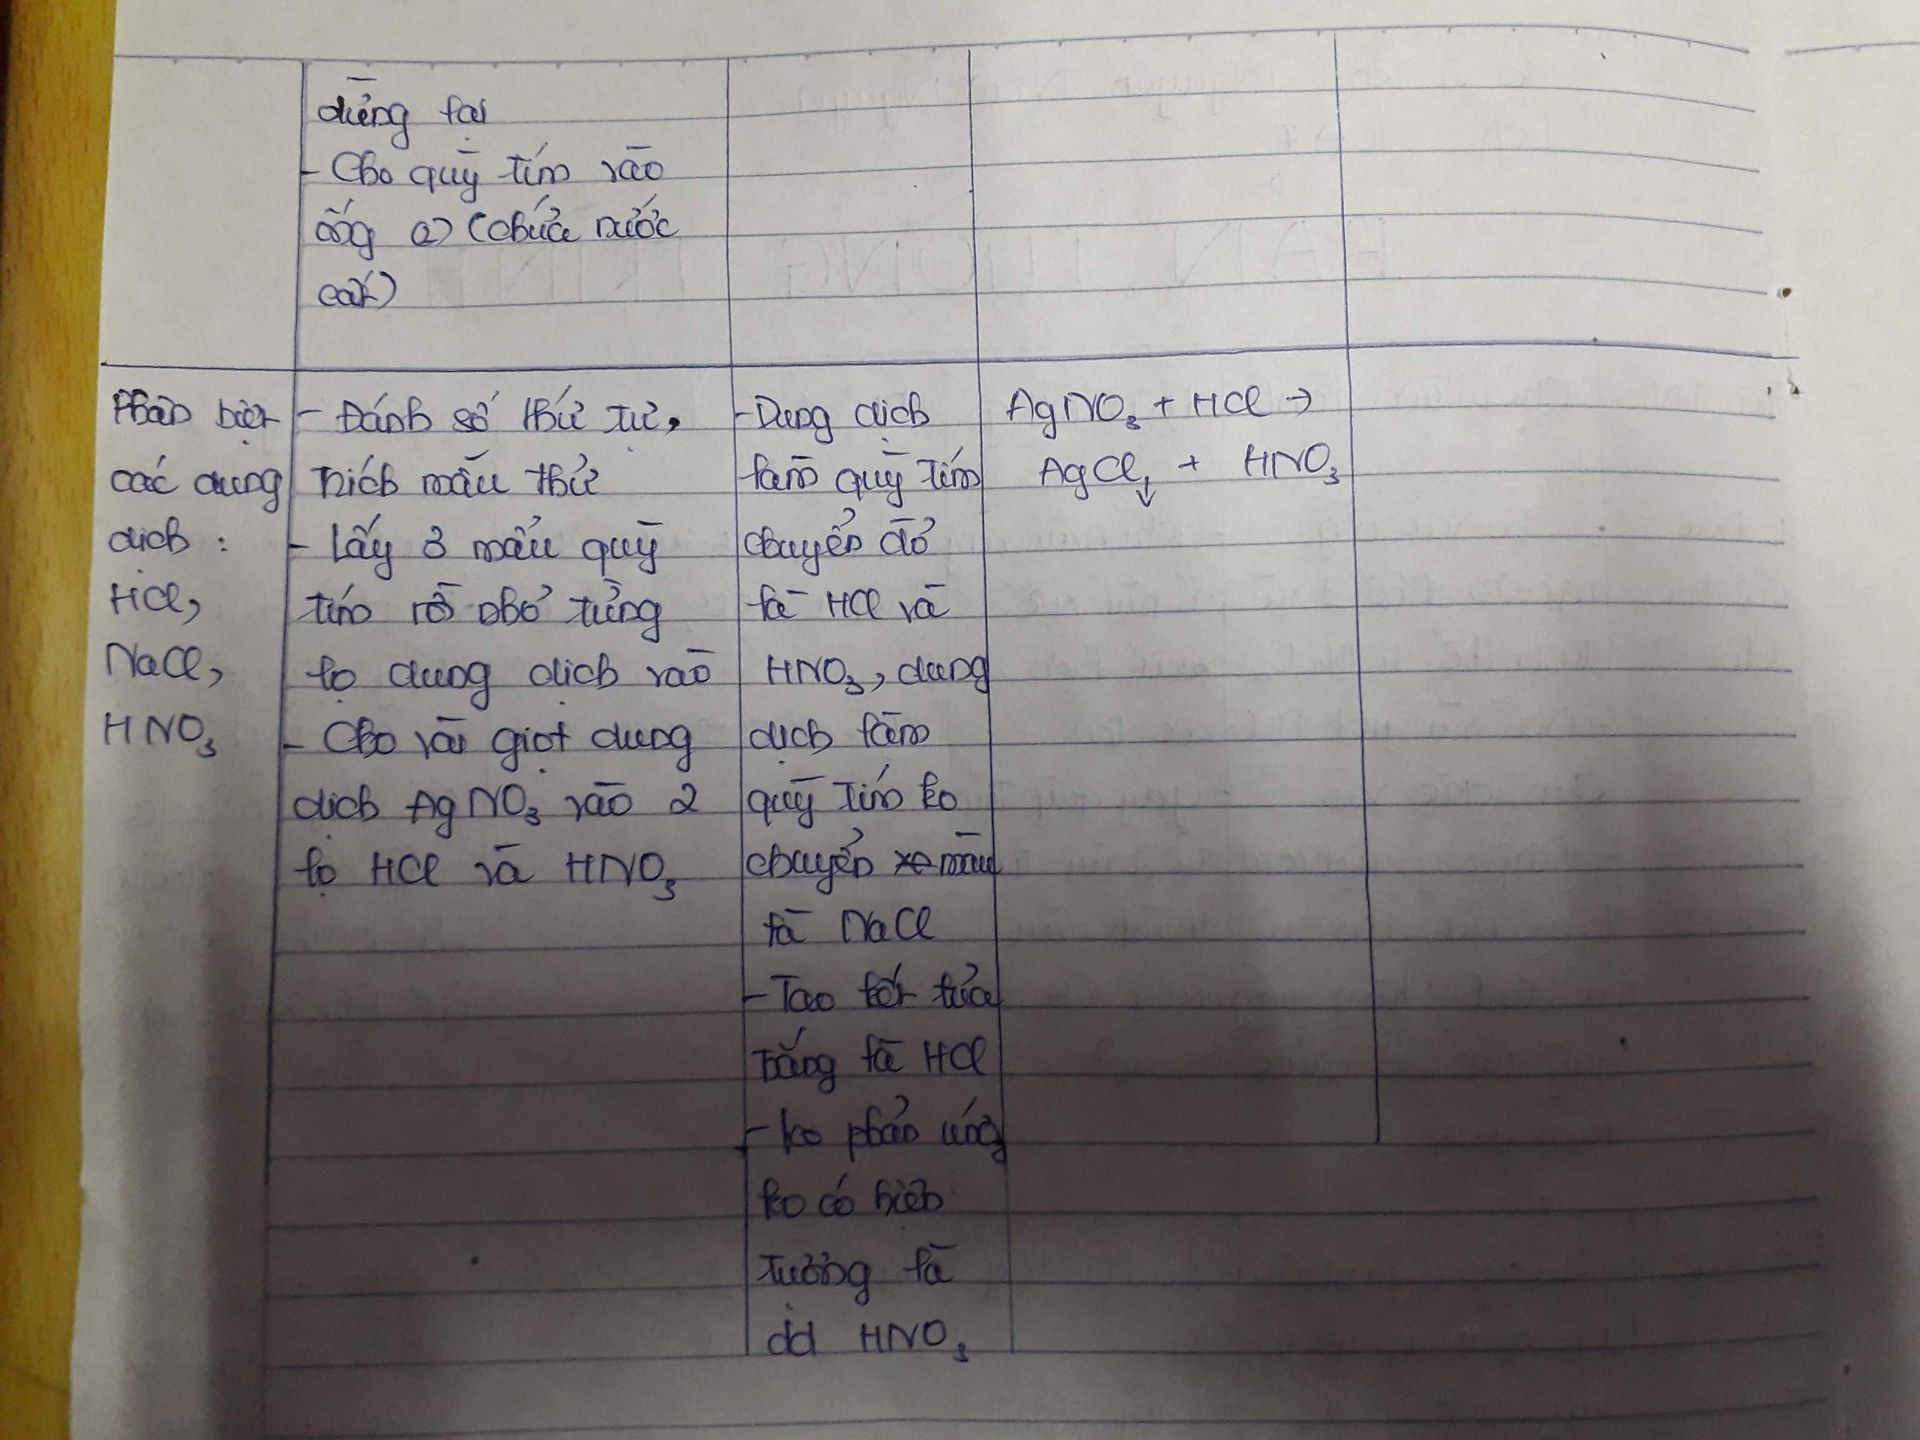 dừng lại
- Cho quỳ tím vào
ống a) (chứa nước
cất)
Phân biệt
các dung
dịch :
HCl,
NaCl,
HNO3
- Đánh số thứ tự,
trích mẫu thử
- Lấy 3 mẩu quỳ
tím rồi nhỏ từng
lọ dung dịch vào
- Cho vài giọt dung
dịch AgNO3 vào 2
lọ HCl và HNO3
- Dung dịch
làm quỳ tím
chuyển đỏ
là HCl và
HNO3, dung
dịch làm
quỳ tím ko
chuyển màu
là NaCl
- Tạo kết tủa
trắng là HCl
- ko phản ứng
ko có hiện
tượng là
dd HNO3
AgNO3 + HCl →
AgCl↓ + HNO3